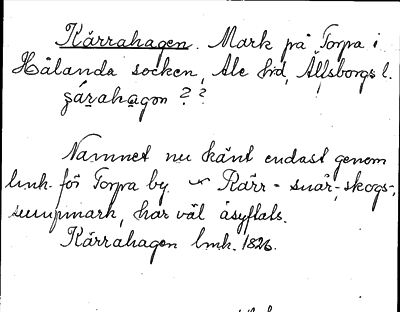 Kärrahagen. Mark på Torpa i
Hålanda socken, Ale hrd, Älfsborgs l.
Namnet nu känt endast genom
lmk. för Torpa by. Kärr - snår-, skogs-,
sumpmark, har väl åsyftats.
Kärrahagen lmk. 1826.